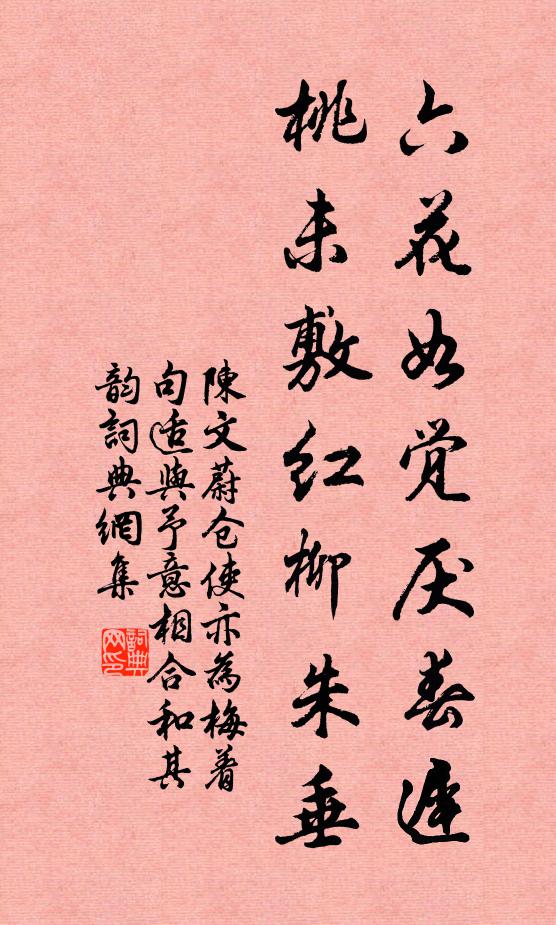 六花如觉厌春遲
桃未敷红柳朱垂
陳文蔚仓使亦為梅着
句适與予意相合和其
韵詞典網集
詞典网印